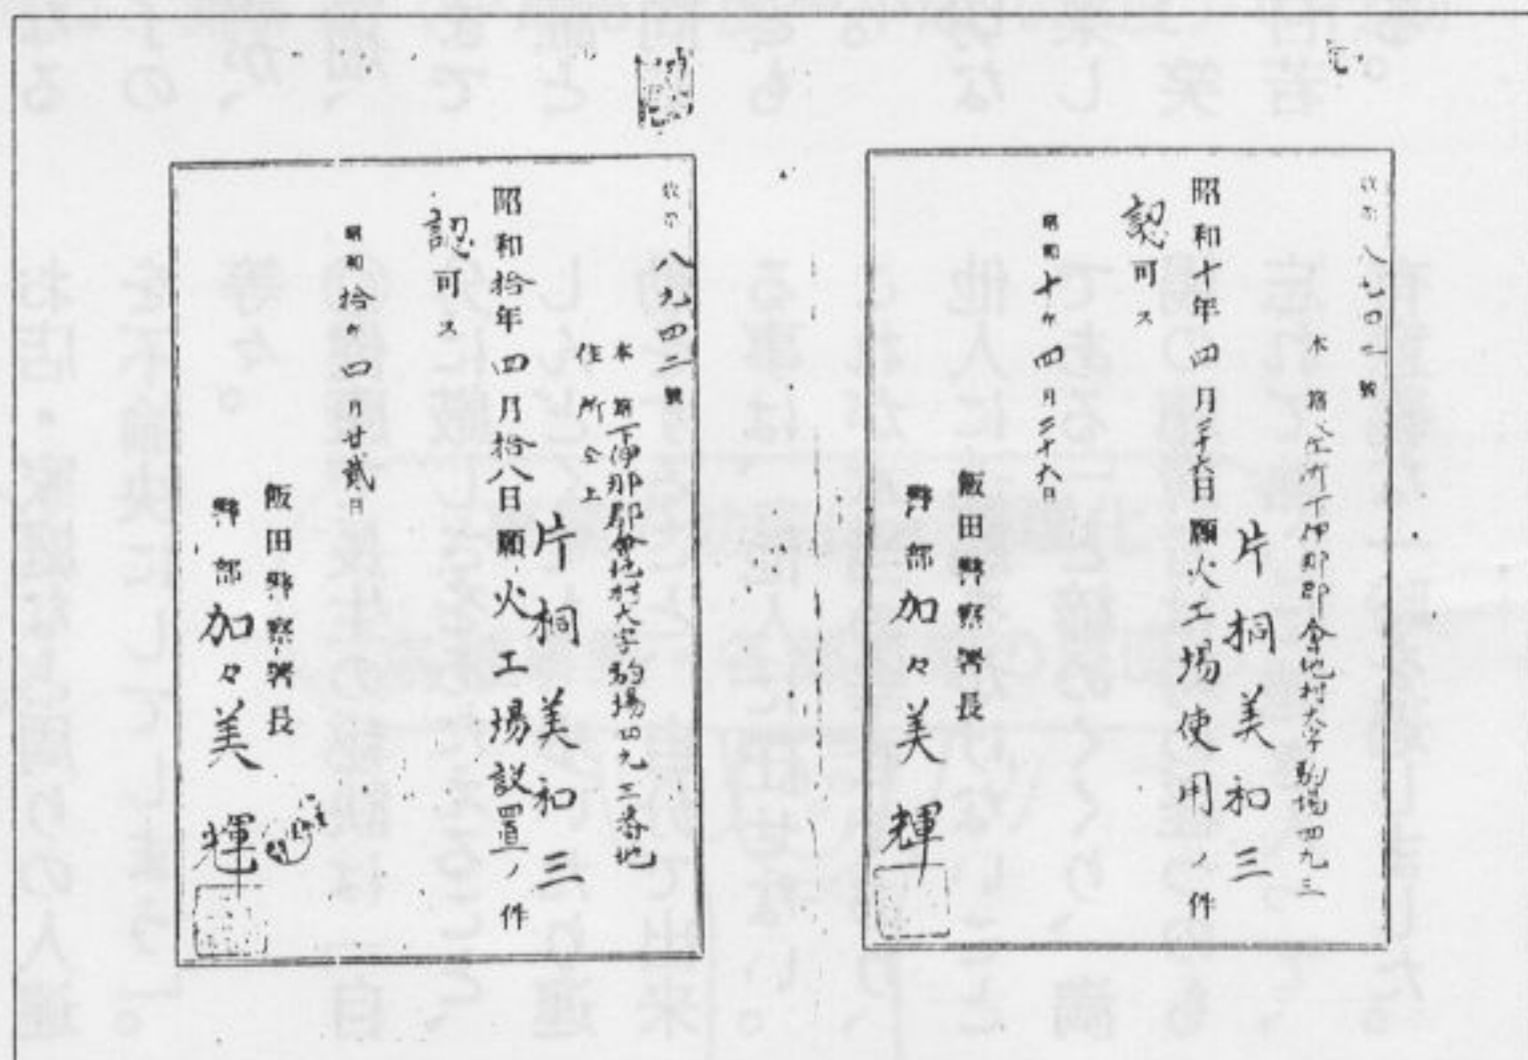 八九四二號
本籍住所下伊那郡會地村大字駒場四九三
片桐美和三
昭和十年四月二十六日願火工場使用ノ件
認可ス
昭和十年四月二十六日
飯田警察署長
警部加々美輝
八九四二號
本籍下伊那郡會地村大字駒場四九三番地
住所仝上
片桐美和三
昭和拾年四月拾八日願火工場設置ノ件
認可ス
昭和拾年四月廿貳日
飯田警察署長
警部加々美輝